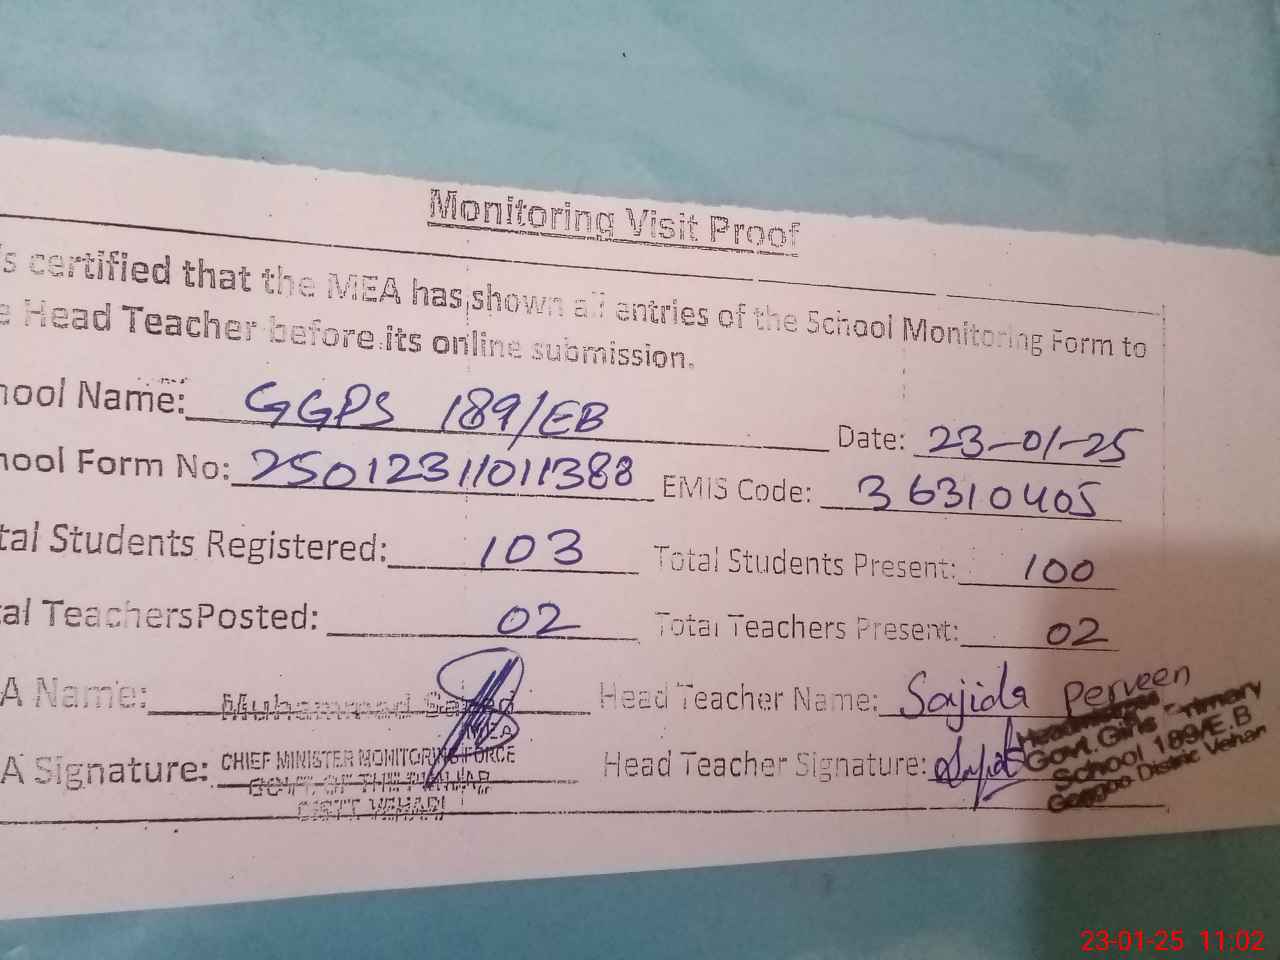 Monitoring Visit Proof
's certified that the MEA has shown all entries of the School Monitoring Form to
e Head Teacher before its online submission.
hool Name: GGPS 189/EB
Date: 23-01-25
hool Form No: 25012311011388 EMIS Code: 36310405
tal Students Registered: 103 Total Students Present: 100
al Teachers Posted: 02 Total Teachers Present: 02
A Name: Muhammad Saeed Head Teacher Name: Sajida Perveen
MEA
A Signature: CHIEF MINISTER MONITORING FORCE Head Teacher Signature: Sajida
GOVT. OF THE PUNJAB
DISTT. VEHARI
Headmistress
Govt. Girls Primary
School 189/E.B
Gaggoo District Vehari
23-01-25 11:02